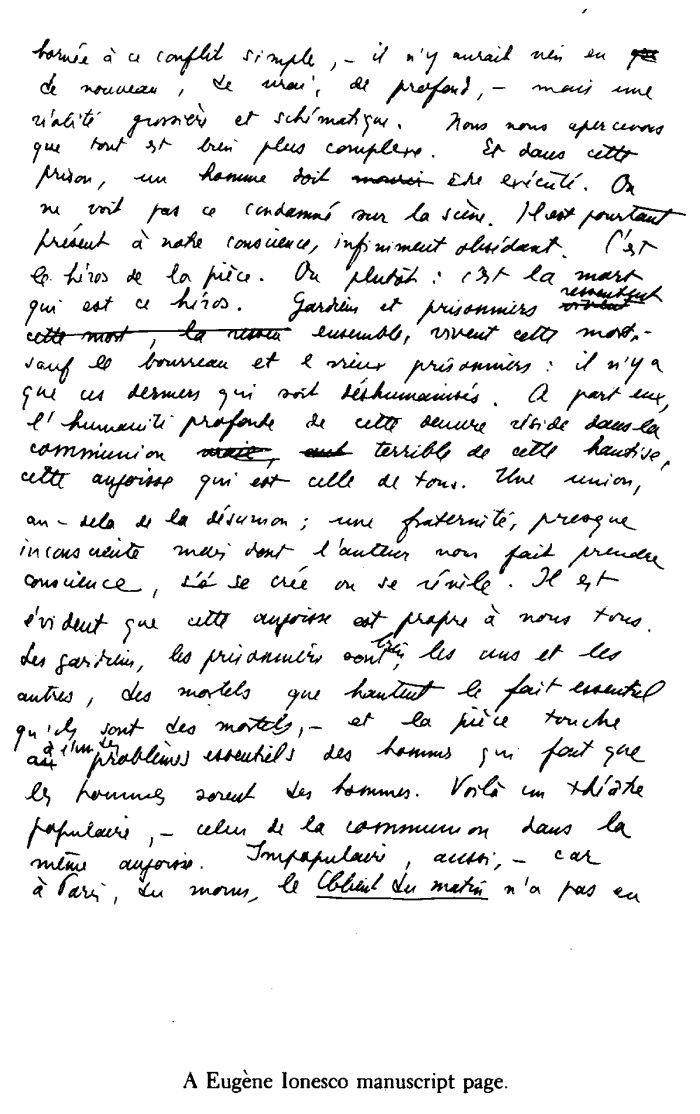 bornée à ce conflit simple, - il n'y aurait rien eu que
de nouveau, de vrai, de profond, - mais une
réalité grossière et schématique. Nous nous apercevons
que tout est bien plus complexe. Et dans cette
prison, un homme doit mourir être exécuté. On
ne voit pas ce condamné sur la scène. Il est pourtant
présent à notre conscience, infiniment obsédant. C'est
le héros de la pièce. Ou plutôt : c'est la mort
qui est ce héros. Gardiens et prisonniers vivent ressentent
cette mort, la ensemble, vivent cette mort, -
sauf le bourreau et le vieux prisonniers : il n'y a
que ces derniers qui soit déshumanisés. A part eux,
l'humanité profonde de cette oeuvre réside dans la
communion terrible de cette hantise,
cette angoisse qui est celle de tous. Une union,
au-dela de la désunion ; une fraternité, presque
inconsciente mais dont l'auteur nous fait prendre
conscience, se crée ou se révèle. Il est
évident que cette angoisse est propre à nous tous.
Les gardiens, les prisonniers sont, les uns et les
autres, des mortels que hantent le fait essentiel
qu'ils sont des mortels, - et la pièce touche
à l'un des problèmes essentiels des hommes qui font que
les hommes soient des hommes. Voilà un théâtre
populaire, - celui de la communion dans la
même angoisse. Impopulaire, aussi, - car
à Paris, du moins, le Client du matin n'a pas eu
A Eugène Ionesco manuscript page.